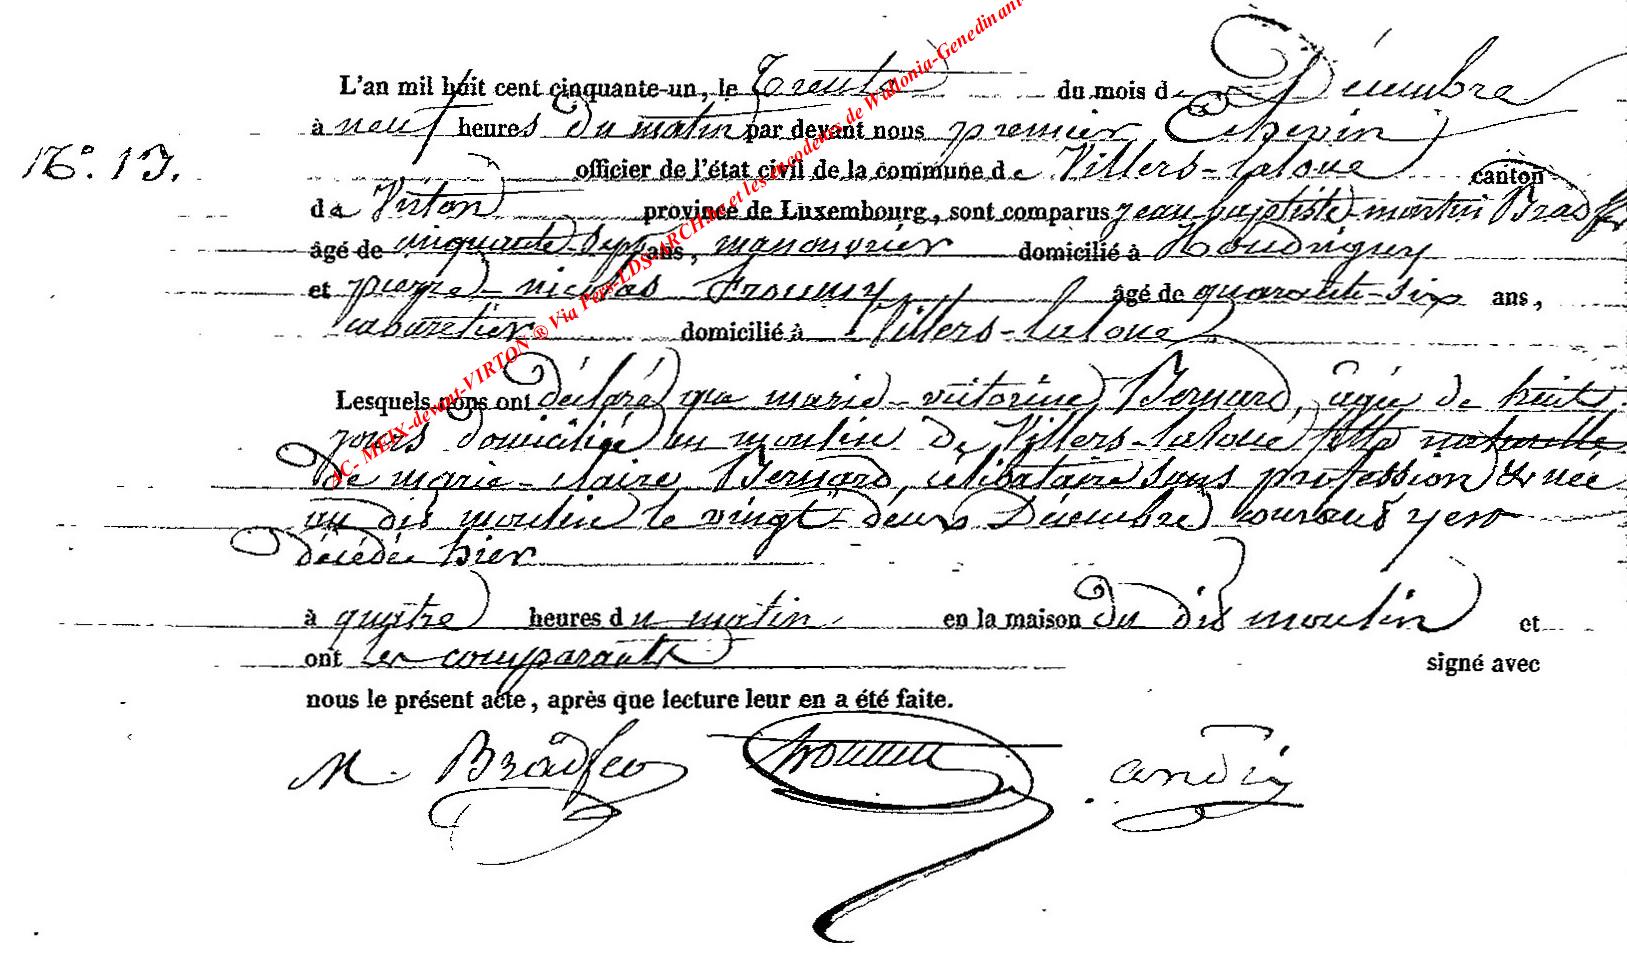 L'an mil huit cent cinquante-un, le Trente du mois de Décembre
à neuf heures du matin par devant nous premier Echevin
N.° 13.
officier de l'état civil de la commune de Villers-laloue canton
de Virton province de Luxembourg, sont comparus jean baptiste martin
âgé de cinquante-sept ans, manouvrier domicilié à Houdrigny
et pierre-nicolas âgé de quarante-six ans,
cabaretier domicilié à Villers-laloue
Lesquels nous ont déclaré que marie-victorine Bernard, agée de huit
jours domiciliée au moulin de Villers-laloue fille naturelle
de marie-claire Bernard, célibataire sans profession & née
au dis moulin le vingt-deux Décembre courant y est
décédée hier
à quatre heures du matin en la maison du dis moulin et
ont les comparants signé avec
nous le présent acte, après que lecture leur en a été faite.
M. andré
AC- MEIX-devant-VIRTON ® Via Pers-LDS-ARCH.be et les encodeurs de Wallonia-Genedinant